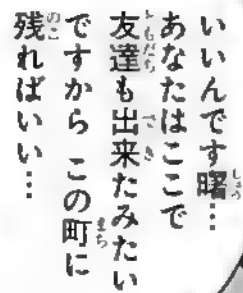 いいんです曙…
あなたはここで
友達も出来たみたい
ですから この町に
残ればいい…